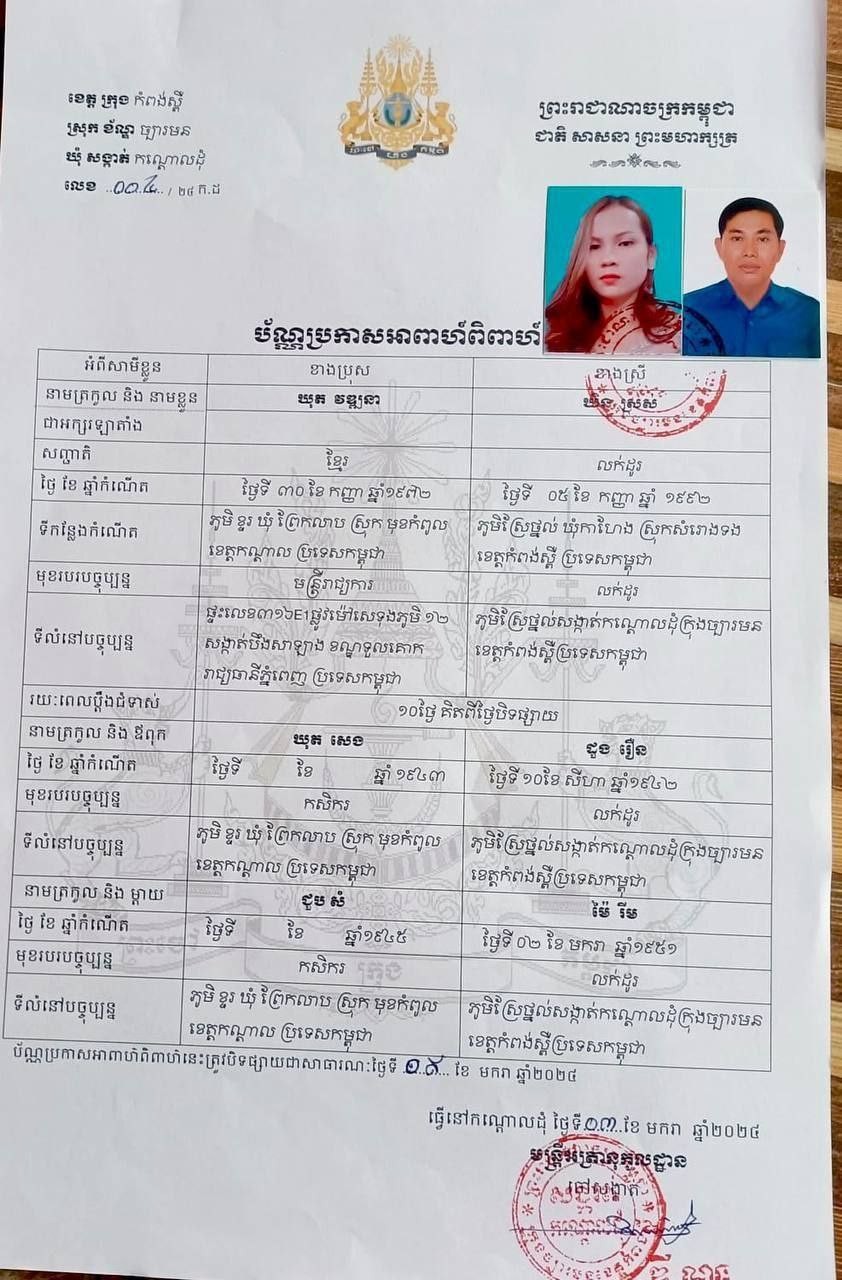 ខេត្ត ក្រុង កំពង់ស្ពឺ
ស្រុក ខ័ណ្ឌ ច្បារមន
ឃុំ សង្កាត់ កណ្តោលដុំ
លេខ ..០០៤.. / ២៤ ក.ដ
ព្រះរាជាណាចក្រកម្ពុជា
ជាតិ សាសនា ព្រះមហាក្សត្រ
ប័ណ្ណប្រកាសអាពាហ៍ពិពាហ៍
អំពីសាមីខ្លួន ខាងប្រុស ខាងស្រី
នាមត្រកូល និង នាមខ្លួន ឃុត វឌ្ឍនា ឃិន ស្រស់
ជាអក្សរឡាតាំង
សញ្ជាតិ ខ្មែរ លក់ដូរ
ថ្ងៃ ខែ ឆ្នាំកំណើត ថ្ងៃទី ៣០ ខែ កញ្ញា ឆ្នាំ១៩៧២ ថ្ងៃទី ០៥ ខែ កញ្ញា ឆ្នាំ ១៩៩២
ទីកន្លែងកំណើត ភូមិ ខ្ទរ ឃុំ ព្រែកលាប ស្រុក មុខកំពូល ខេត្តកណ្តាល ប្រទេសកម្ពុជា ភូមិស្រែផ្នល់ ឃុំកាហែង ស្រុកសំរោងទង ខេត្តកំពង់ស្ពឺ ប្រទេសកម្ពុជា
មុខរបរបច្ចុប្បន្ន មន្ត្រីរាជ្យការ លក់ដូរ
ទីលំនៅបច្ចុប្បន្ន ផ្ទះលេខ៣១៦E1ផ្លូវម៉ៅសេទុងភូមិ ១២ សង្កាត់បឹងសាឡាង ខណ្ឌទួលគោក រាជ្យធានីភ្នំពេញ ប្រទេសកម្ពុជា ភូមិស្រែផ្នល់សង្កាត់កណ្តោលដុំក្រុងច្បារមន ខេត្តកំពង់ស្ពឺប្រទេសកម្ពុជា
រយៈពេលប្តឹងជំទាស់ ១០ថ្ងៃ គិតពីថ្ងៃបិទផ្សាយ
នាមត្រកូល និង ឪពុក ឃុត សេង ដួង រឿន
ថ្ងៃ ខែ ឆ្នាំកំណើត ថ្ងៃទី ខែ ឆ្នាំ ១៩៤៣ ថ្ងៃទី ១០ខែ សីហា ឆ្នាំ១៩៤២
មុខរបរបច្ចុប្បន្ន កសិករ លក់ដូរ
ទីលំនៅបច្ចុប្បន្ន ភូមិ ខ្ទរ ឃុំ ព្រែកលាប ស្រុក មុខកំពូល ខេត្តកណ្តាល ប្រទេសកម្ពុជា ភូមិស្រែផ្នល់សង្កាត់កណ្តោលដុំក្រុងច្បារមន ខេត្តកំពង់ស្ពឺប្រទេសកម្ពុជា
នាមត្រកូល និង ម្តាយ ជួប សំ ម៉ៃ រឹម
ថ្ងៃ ខែ ឆ្នាំកំណើត ថ្ងៃទី ខែ ឆ្នាំ១៩៤៥ ថ្ងៃទី ០២ ខែ មករា ឆ្នាំ១៩៥១
មុខរបរបច្ចុប្បន្ន កសិករ លក់ដូរ
ទីលំនៅបច្ចុប្បន្ន ភូមិ ខ្ទរ ឃុំ ព្រែកលាប ស្រុក មុខកំពូល ខេត្តកណ្តាល ប្រទេសកម្ពុជា ភូមិស្រែផ្នល់សង្កាត់កណ្តោលដុំក្រុងច្បារមន ខេត្តកំពង់ស្ពឺប្រទេសកម្ពុជា
ប័ណ្ណប្រកាសអាពាហ៍ពិពាហ៍នេះត្រូវបិទផ្សាយជាសាធារណៈថ្ងៃទី ..១៩... ខែ មករា ឆ្នាំ២០២៤
ធ្វើនៅកណ្តោលដុំ ថ្ងៃទី.១៣..ខែ មករា ឆ្នាំ២០២៤
មន្ត្រីអត្រានុកូលដ្ឋាន
ចៅសង្កាត់